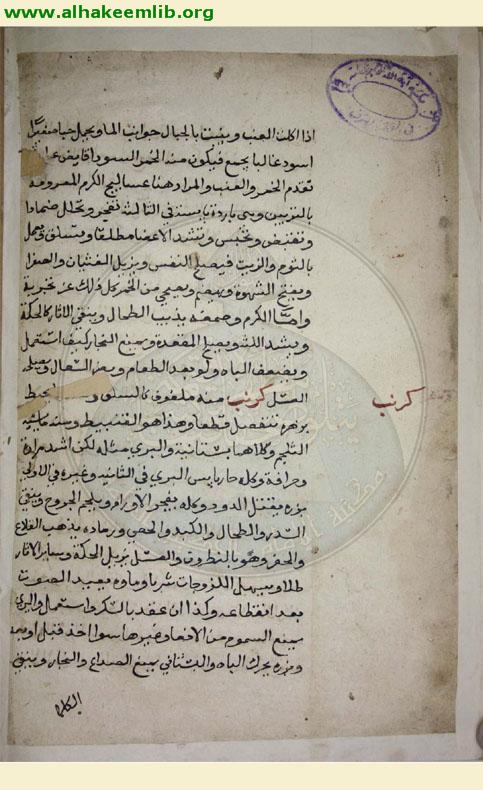 www.alhakeemlib.org
اذا اكلت العنب وينبت بالجبال جوانب الما ويحمل حبا
اسود غالبا يجمع فيكون منه الخمر السودا قابض
تقدم الخمر والعنب والمراد هنا عساليج الكرم المعروفة
وهى باردة يابسة في الثالثة تفجر وتحلل ضمادا
وتقبض وتحبس وتشد الاعضا مطلقا وتسلق
بالثوم والزيت فيصلح النفس ويزيل الغثيان والصفرا
ويفتح الشهوة ويهضم من الخمر كل ذلك عن تجربة
الكرم وصمغه يذيب الطحال وينقى الاثار كالحكة
ويشد اللثة ويصلح المقعدة ويمنع البخار كيف استعمل
ويضعف الباه ولو بعد الطعام السعال ويصلحه
العسل كرنب منه ملفوف كالسلق
كرنب
بزهره تنفصل قطعا وهذا هو القنبيط ومنه
الثلجم وكلاهما بستانية والبري مثله لكن اشد مرارة
وحرافة وكله حار يابس البري في الثانية وغيره في الاولي
بزره يقتل الدود وكله يفجر الاورام ويلحم الجروح وينقى
الصدر والطحال والكبد والحصى ورماده يذهب القلاع
والحفر وهو بالنطرون والعسل يزيل الحكة وساير الاثار
طلا ويسهل اللزوجات شربا وماوه يعيد الصوت
بعد انقطاعه وكذا ان عقد بالسكر واستعمل والبري
يمنع السموم من الافعا وغيرها سوا اخذ قبل او بعد
وبزره يحرك الباه والبستاني يمنع الصداع والبخار وينقى
الكلا